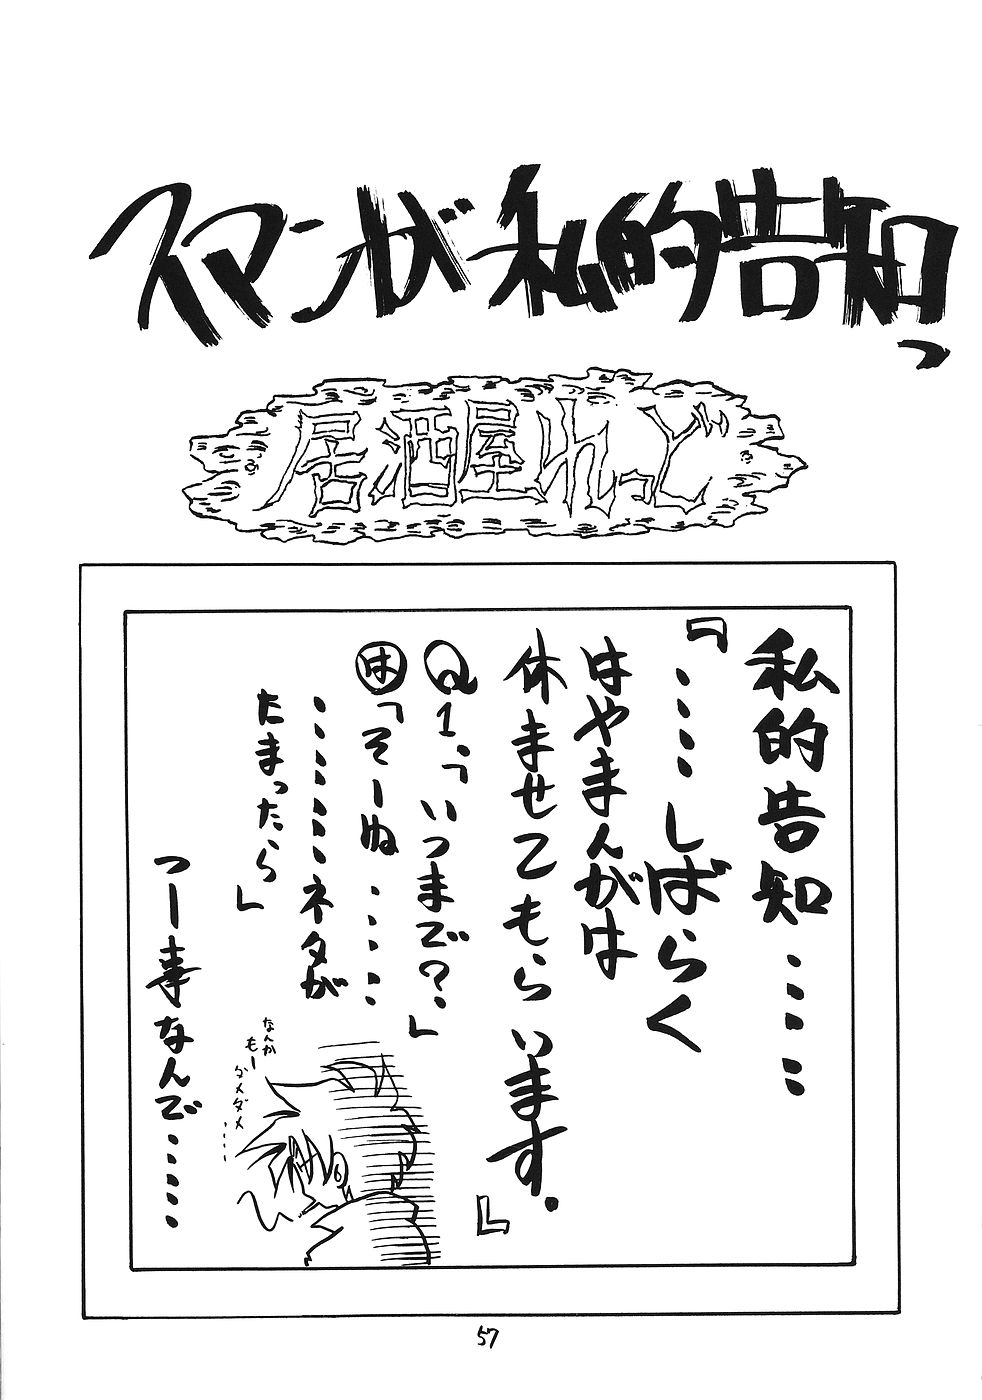 スマンが私的告知っ
居酒屋れっど
私的告知……
『……しばらく
はやまんがは
休ませてもらいます。』
Q1.「いつまで?」
は「そーぬ……
………ネタが
たまったら」
つー事なんで……
なんか
もー
ダメダメ……
57